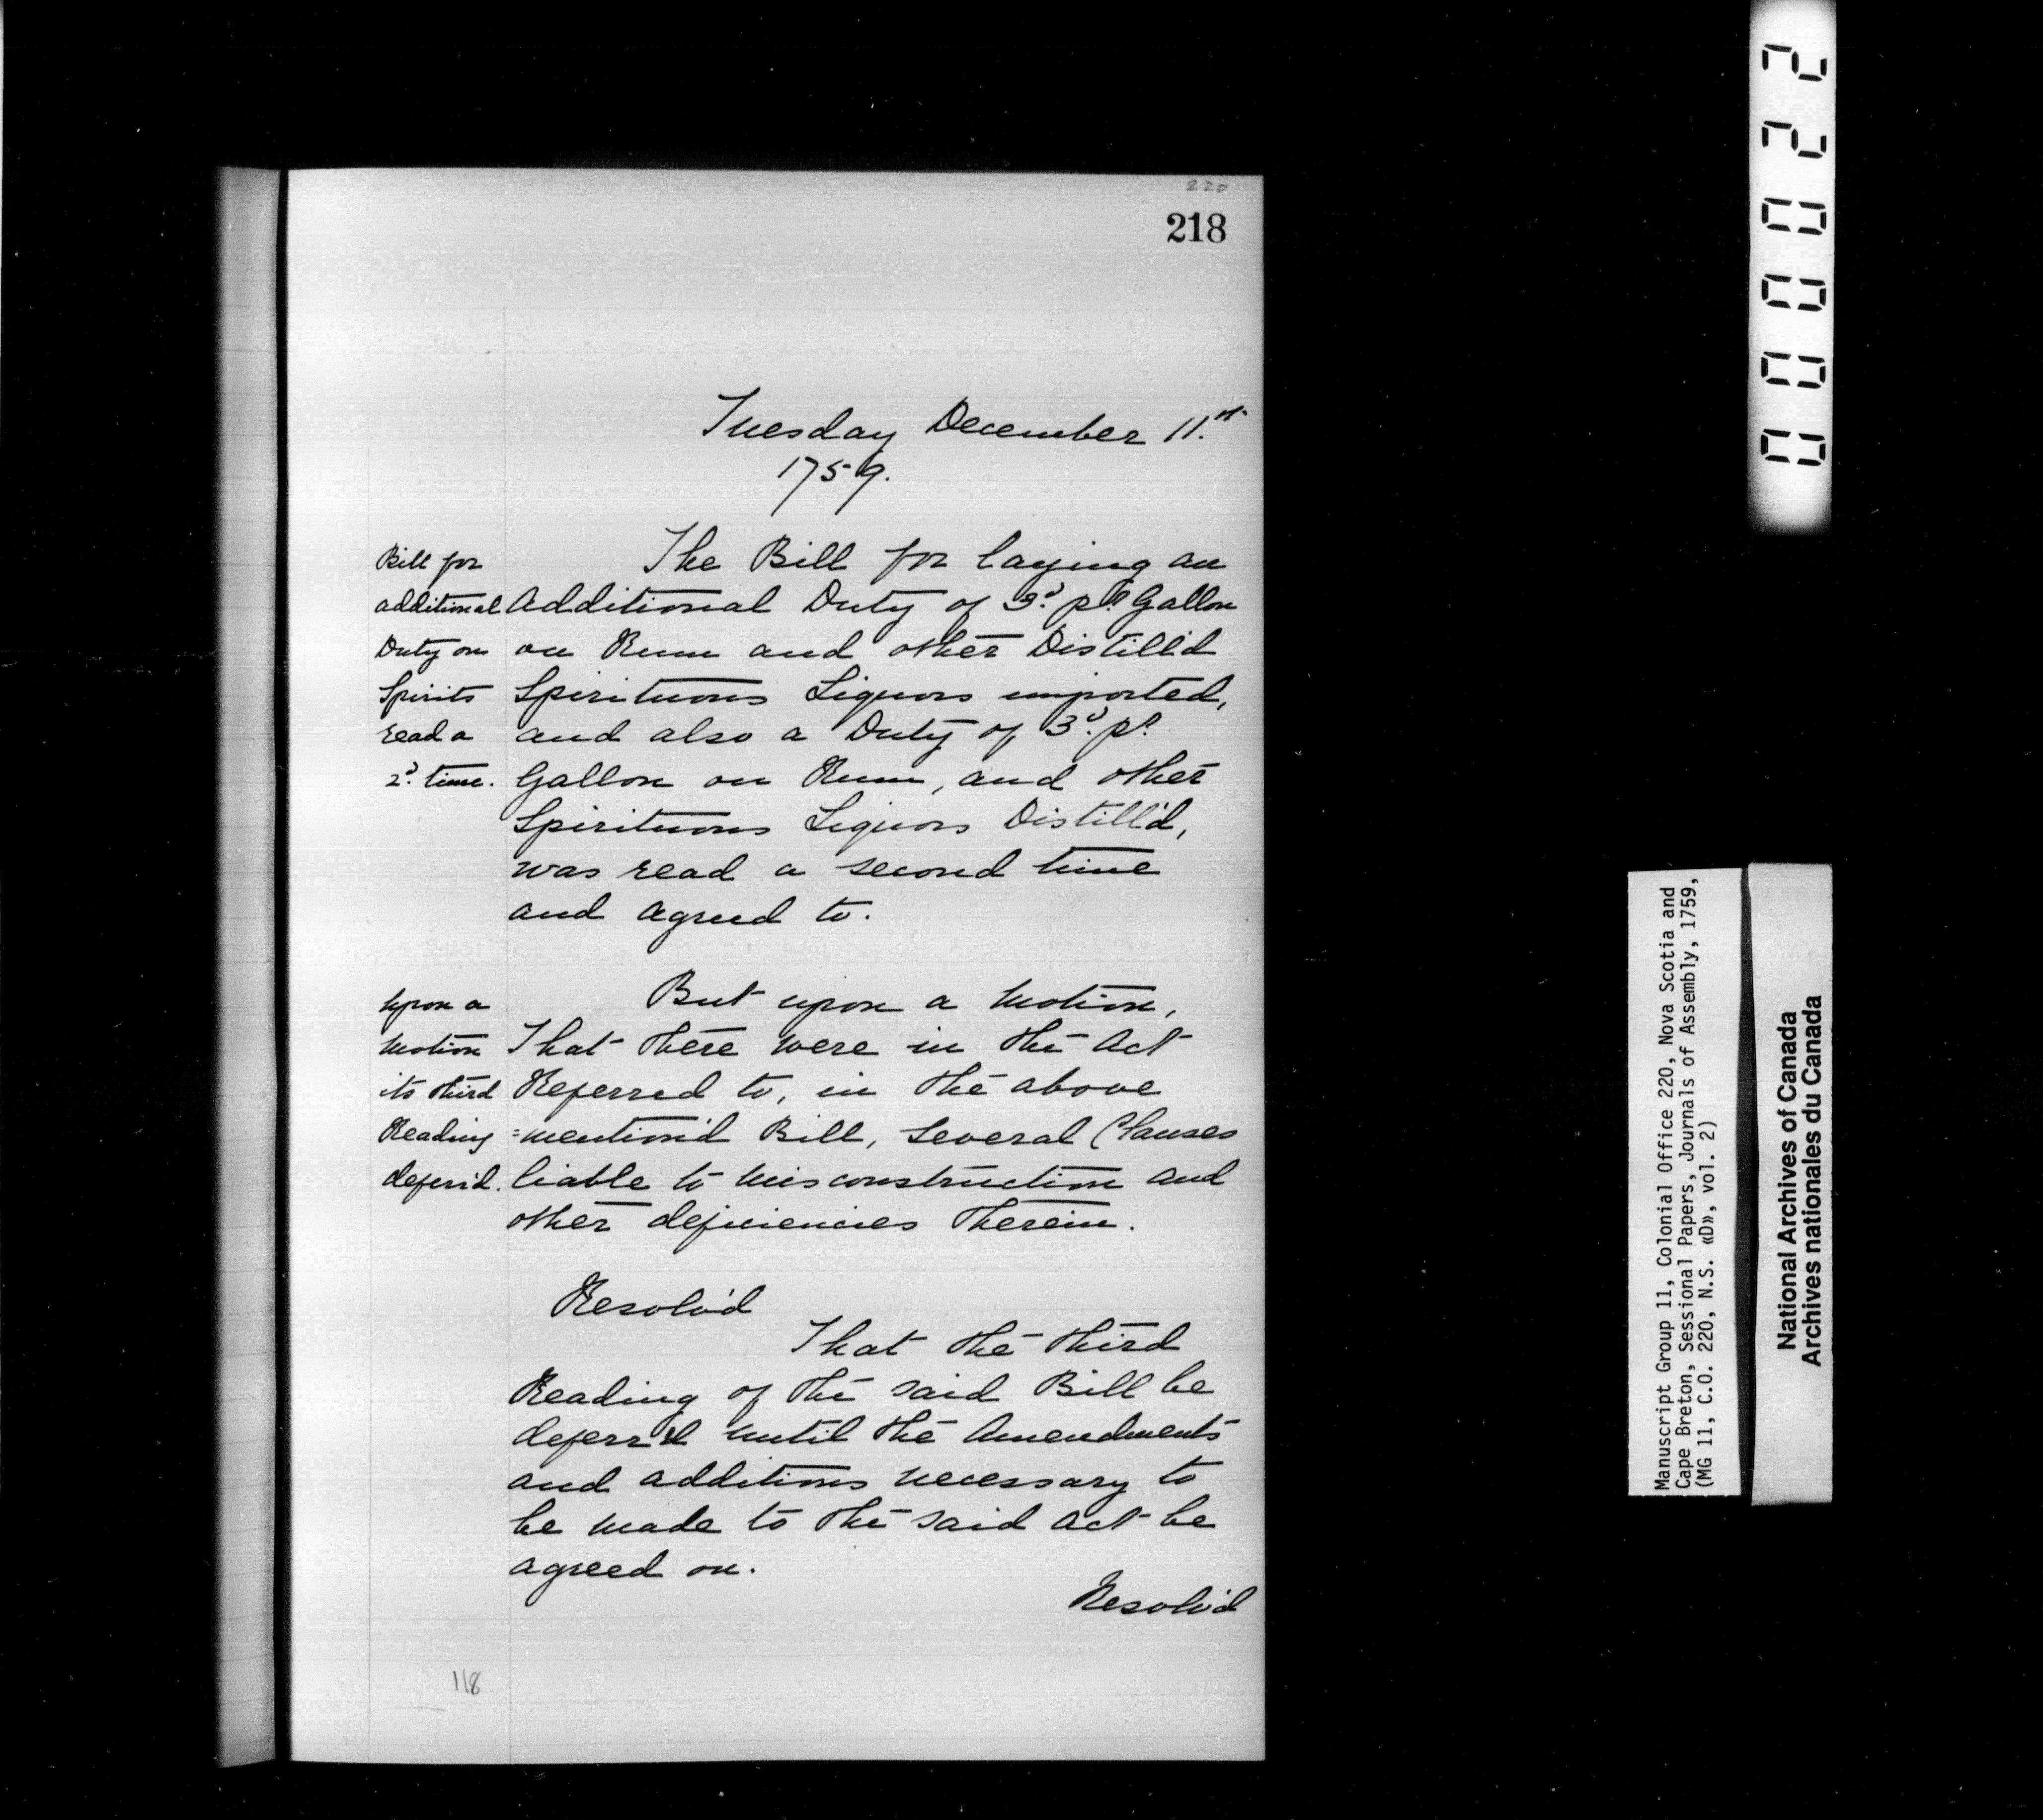 220
218
Tuesday December 11.th
1759.
Bill for
additional
Duty on
Spirits
read a
2d. time.
The Bill for laying an
Additional Duty of 3d. pr. Gallon
on Rum and other Distill'd
Spirituous Liquors imported,
and also a Duty of 3d. pr.
Gallon on Rum, and other
Spirituous Liquors Distill'd,
was read a second time
and agreed to.
Upon a
Motion
its third
Reading
deferr'd.
But upon a Motion,
That there were in the Act
Referred to, in the above
=mention'd Bill, Several Clauses
liable to Misconstruction and
other deficiencies Therein.
Resolv'd
That the third
Reading of the said Bill be
deferr'd until the Amendments
and additions necessary to
be made to the said Act be
agreed on.
Resolv'd
118
000022
Manuscript Group 11, Colonial Office 220, Nova Scotia and
Cape Breton, Sessional Papers, Journals of Assembly, 1759,
(MG 11, C.O. 220, N.S. «D», vol. 2)
National Archives of Canada
Archives nationales du Canada